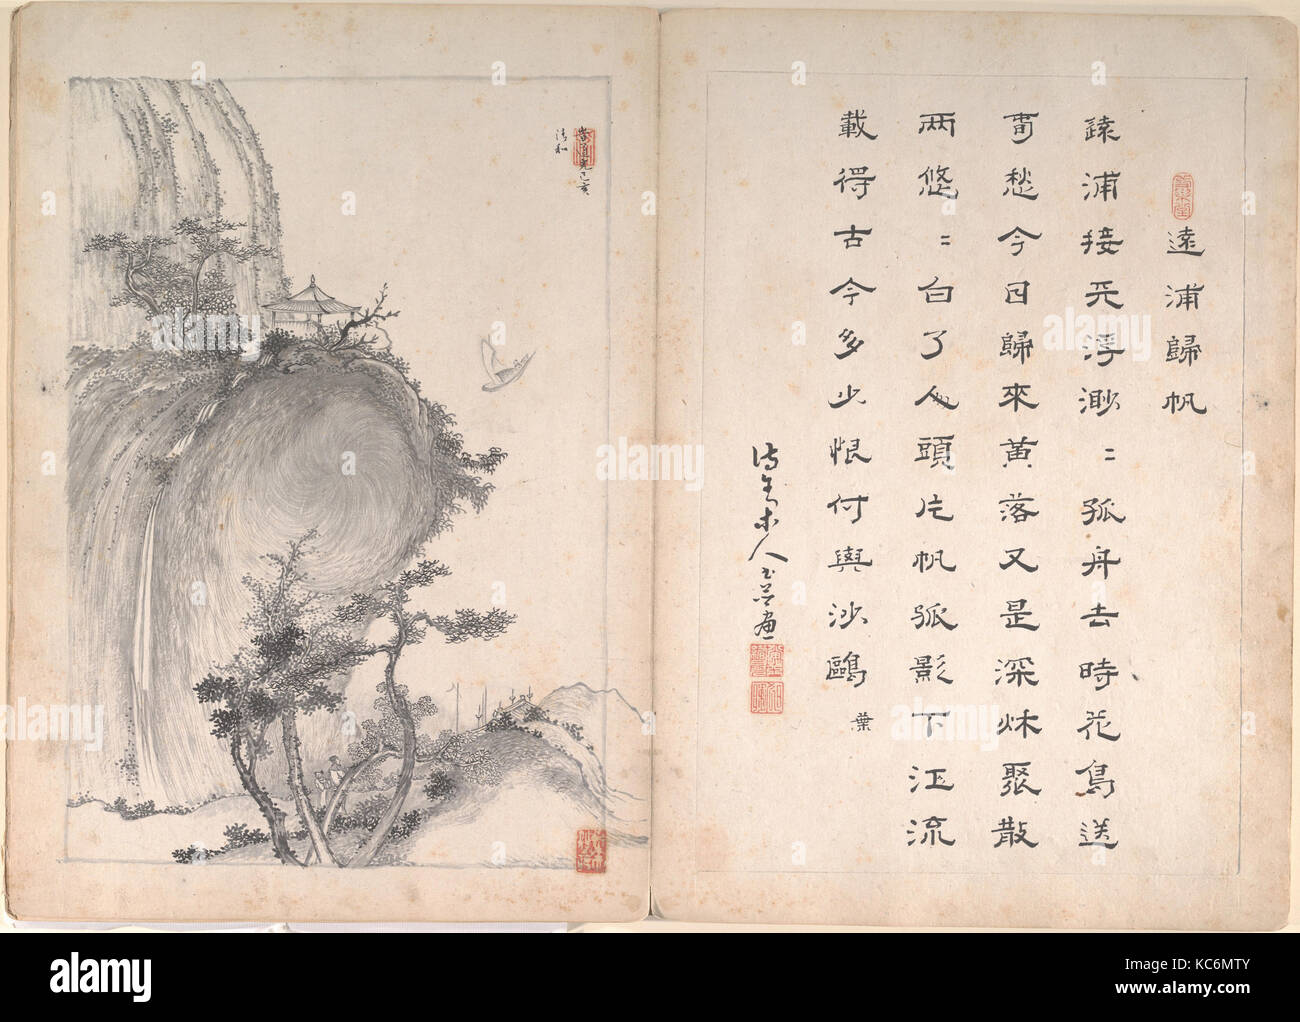 遠浦歸帆
遠浦接天浮渺〻孤舟去時花鳥送
春愁今日歸來黃落又是深秋聚散
兩悠〻白了人頭片帆孤影下江流
載得古今多少恨付與沙鷗
葉
人書並畫
道光己亥
清和
alamy
alamy stock photo
KC6MTY
www.alamy.com